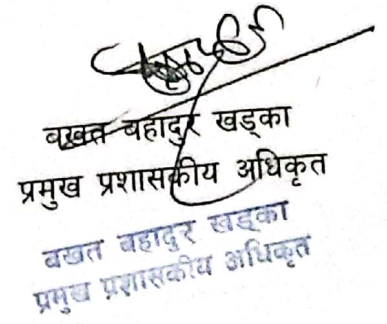 वखत बहादुर खड्का
प्रमुख प्रशासकीय अधिकृत
वखत बहादुर खड्का
प्रमुख प्रशासकीय अधिकृत